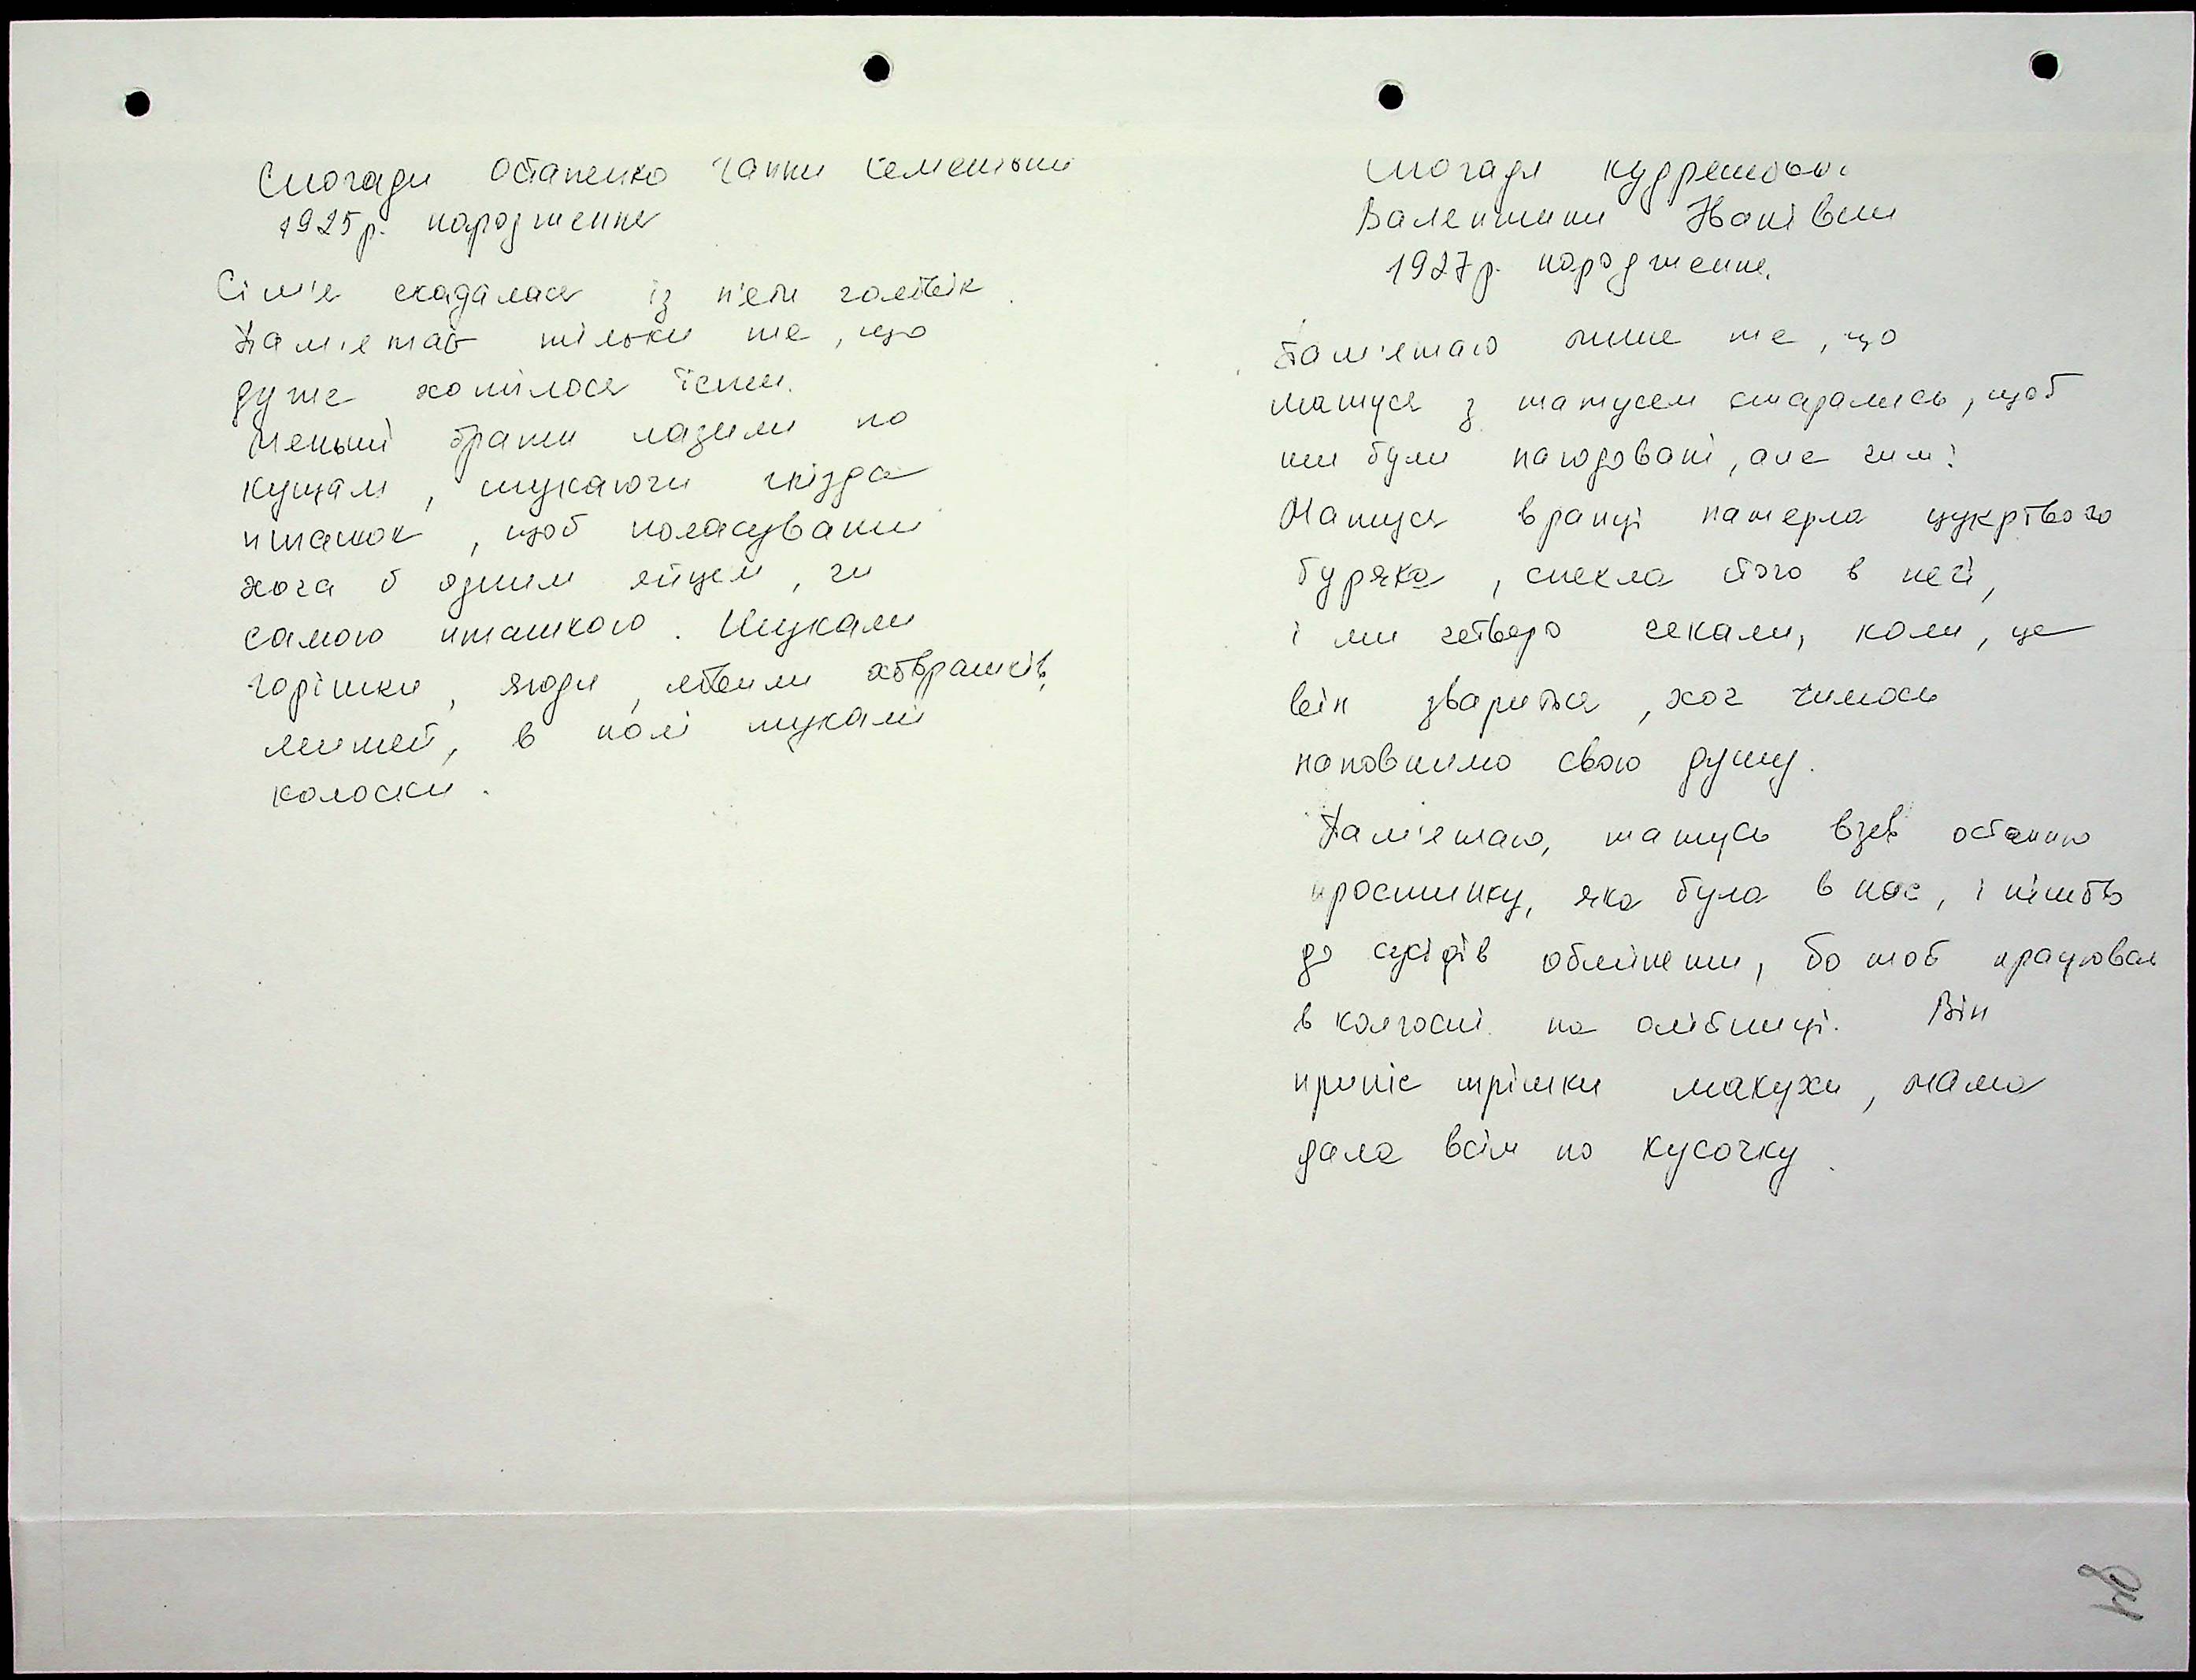 Спогади Остапенко Ганни Семенівни
1925р. народження
Сім'я складалася із п'яти чоловік.
Пам'ятаю тільки те, що
дуже хотілося їсти.
Меньші брати лазили по
кущам, шукаючи гнізда
пташок, щоб поласувати
хоча б одним яйцем, чи
самою пташкою. Шукали
горішки, ягоди, ловили ховрашків,
мишей, в полі шукали
колоски.
Спогади
Валентини Іванівни
1927р. народження.
Пам'ятаю лише те, що
матуся з татусем старались, щоб
ми були нагодовані, але чим?
Матуся вранці натерла цукрового
буряка, спекла його в печі,
і ми четверо чекали, коли, це
він звариться, хоч чимось
наповнимо свою душу.
Пам'ятаю, татусь взяв останню
простинку, яка була в нас, і пішов
до сусідів обміняти, бо той працював
в колгоспі на олійниці. Він
приніс трішки макухи, мама
дала всім по кусочку.
84